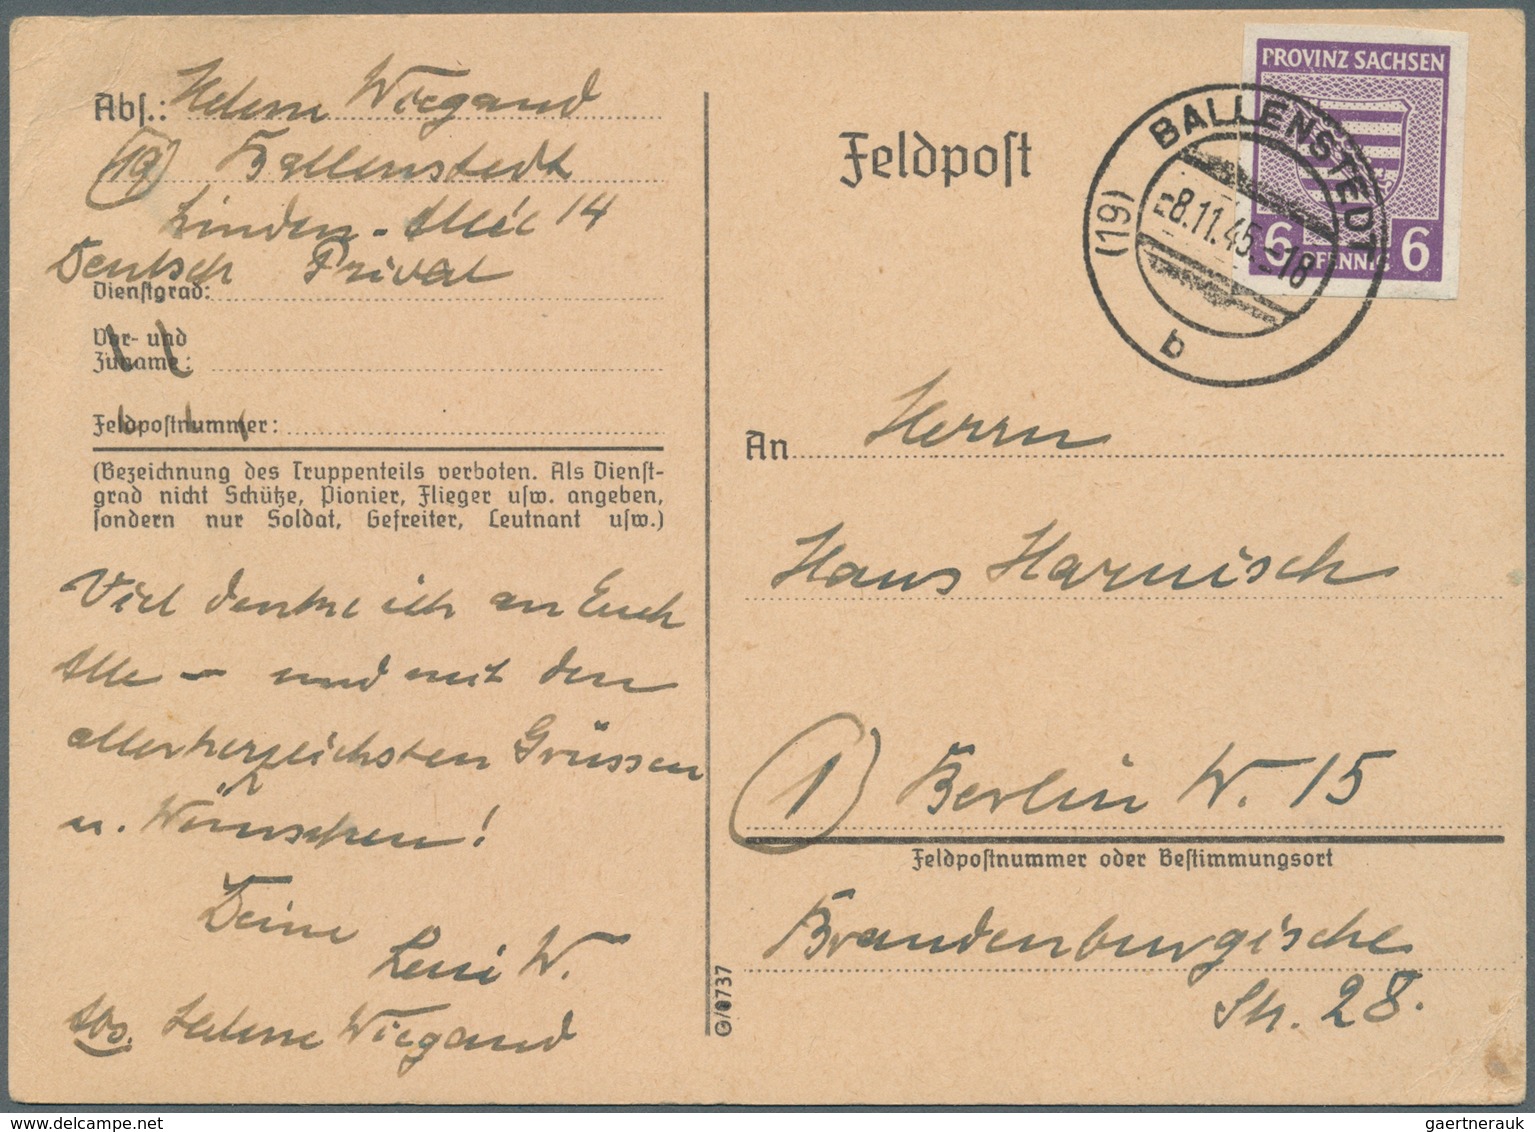 Abs.: Helene Wiegand
(19) Ballenstedt
Linden-Allee 14
Deutsch Privat
Dienstgrad:
Vor- und
Zuname:
Feldpostnummer:
(Bezeichnung des Truppenteils verboten. Als Dienst-
grad nicht Schütze, Pionier, Flieger usw. angeben,
sondern nur Soldat, Gefreiter, Leutnant usw.)
Viel denke ich an Euch
Alle – und mit den
allerherzlichsten Grüssen
u. Wünschen!
Deine
Leni W.
Abs. Helene Wiegand
G/0737
Feldpost
PROVINZ SACHSEN
6 PFENNIG 6
BALLENSTEDT
(19)
-8.11.45.-18
b
An Herrn
Hans Harnisch
(1) Berlin W. 15
Feldpostnummer oder Bestimmungsort
Brandenburgische
Str. 28.
www.delcampe.net
gaertnerauk